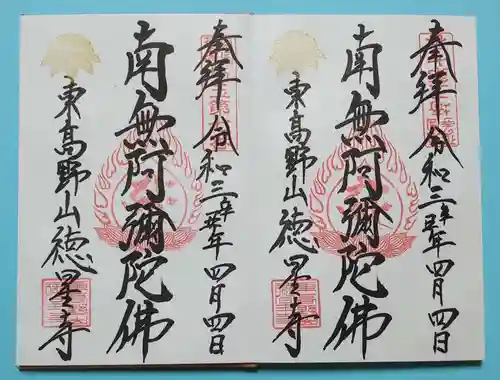 奉拝 令和三辛丑年四月四日
南無阿彌陀佛
東高野山徳星寺
奉拝 令和三辛丑年四月四日
南無阿彌陀佛
東高野山徳星寺